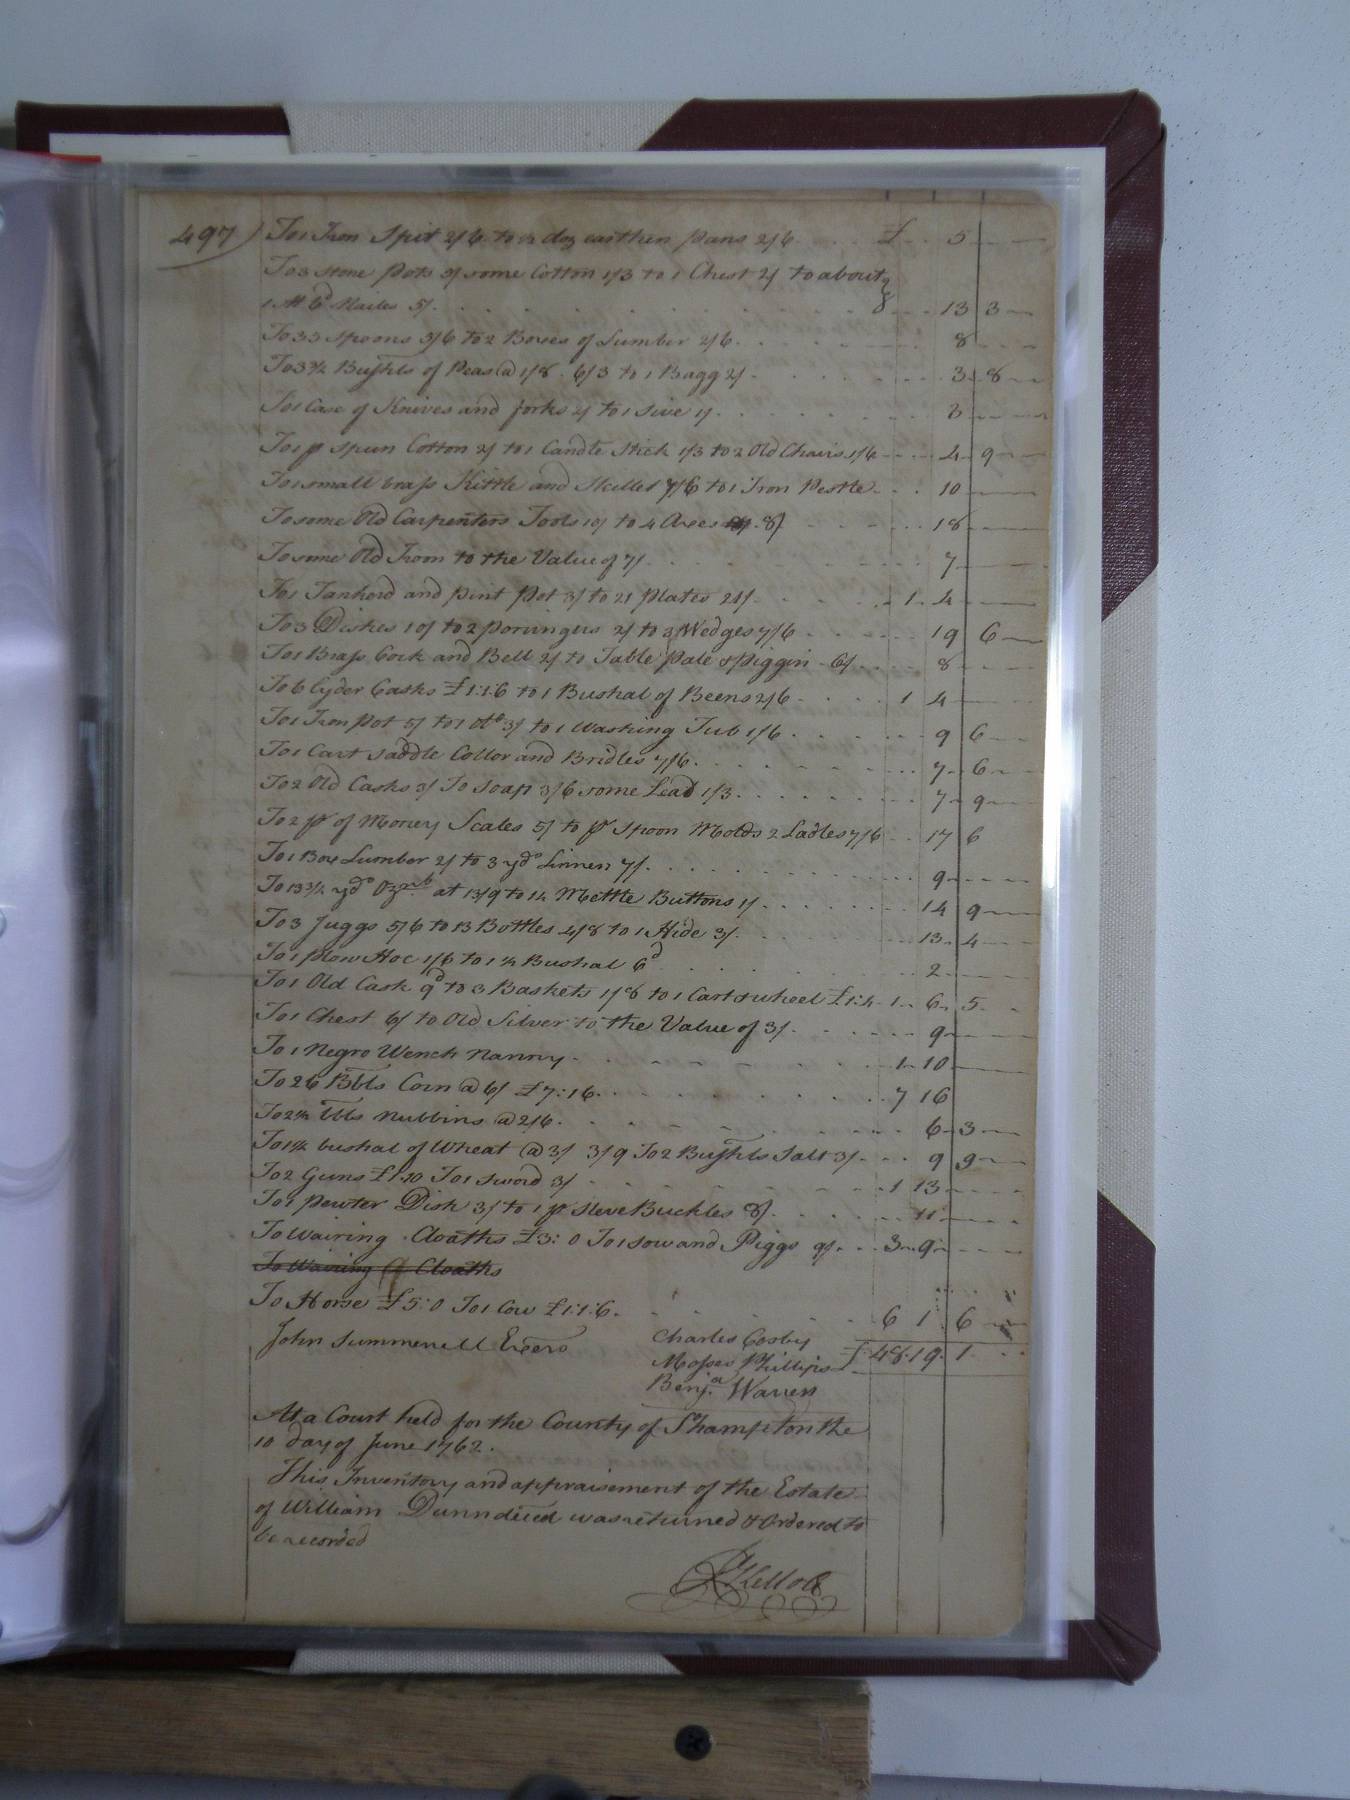 497) To 1 Iron Spit 2/6 to ½ doz earthen pans 2/6 £ 5
To 3 Stone pots 3/ some Cotton 1/3 to 1 Chest 2/ to about
1 M 6d Nailes 5/ 13 3
To 33 Spoons 3/6 to 2 Boxes of Lumber 2/6 8
To 3¾ Bushls of Peas @ 1/8 6/3 to 1 Bagg 2/ 3 8
To 1 Case of Knives and forks 2/ to 1 Sive 1/ 3
To 1 p Spun Cotton 2/ to 1 Candle Stick 1/3 to 2 Old Chairs 1/6 4 9
To 1 small brass Kittle and Skillet 7/6 to 1 Iron Pestle 10
To some Old Carpenters Tools 10/ to 4 Axes 8/ 18
To some Old Iron to the Value of 7/ 7
To 1 Tankord and pint Pot 3/ to 21 plates 21/ 1 4
To 3 Dishes 10/ to 2 poringers 2/ to 3 Wedges 7/6 19 6
To 1 Brass Cock and Bell 2/ to Table pale & Piggin 6/ 8
To 6 Cyder Casks £1:1:6 to 1 Bushal of Beens 2/6 1 4
To 1 Iron Pot 5/ to 1 do 3/ to 1 Washing Tub 1/6 9 6
To 1 Cart Saddle Collor and Bridles 7/6 7 6
To 2 Old Casks 3/ To Soap 3/6 some Lead 1/3 7 9
To 2 pr of Money Scales 5/ to pr Spoon Molds 2 Ladles 7/6 17 6
To 1 Box Lumber 2/ to 3 yds Linnen 7/ 9
To 13¾ yds Oznb at 13/9 to 14 Mettle Buttons 1/ 14 9
To 3 Juggs 5/6 to 13 Bottles 4/8 to 1 Hide 3/ 13 4
To 1 plow Hoe 1/6 to 1 ½ Bushal 6d 2
To 1 Old Cask 9d to 3 Baskets 1/8 to 1 Cart & wheel £1:4 1 6 5
To 1 Chest 6/ to Old Silver to the Value of 3/ 9
To 1 Negro Wench Nanny 1 10
To 26 Bbls Corn @ 6/ £7:16 7 16
To 2½ bbls Nubbins @ 2/6 6 3
To 1¼ bushal of Wheat @ 3/ 3/9 To 2 Bushls Salt 3/ 9 9
To 2 Guns £1:10 To 1 Sword 3/ 1 13
To 1 pewter Dish 3/ to 1 pr Sleve Buckles 8/ 11
To Wairing Cloaths £3:0 To 1 sow and Piggs 9/ 3 9
To Wairing Cloaths
To Horse £5:0 To 1 Cow £1:1:6 6 1 6
John Summerell Exors Charles Cosby
Moses Phillips £48 19 1
Benja Warren
At a Court held for the County of S'hampton the
10 day of June 1762.
This Inventory and appraisement of the Estate
of William Dunn deced was returned & Ordered to
be recorded
R Kello C